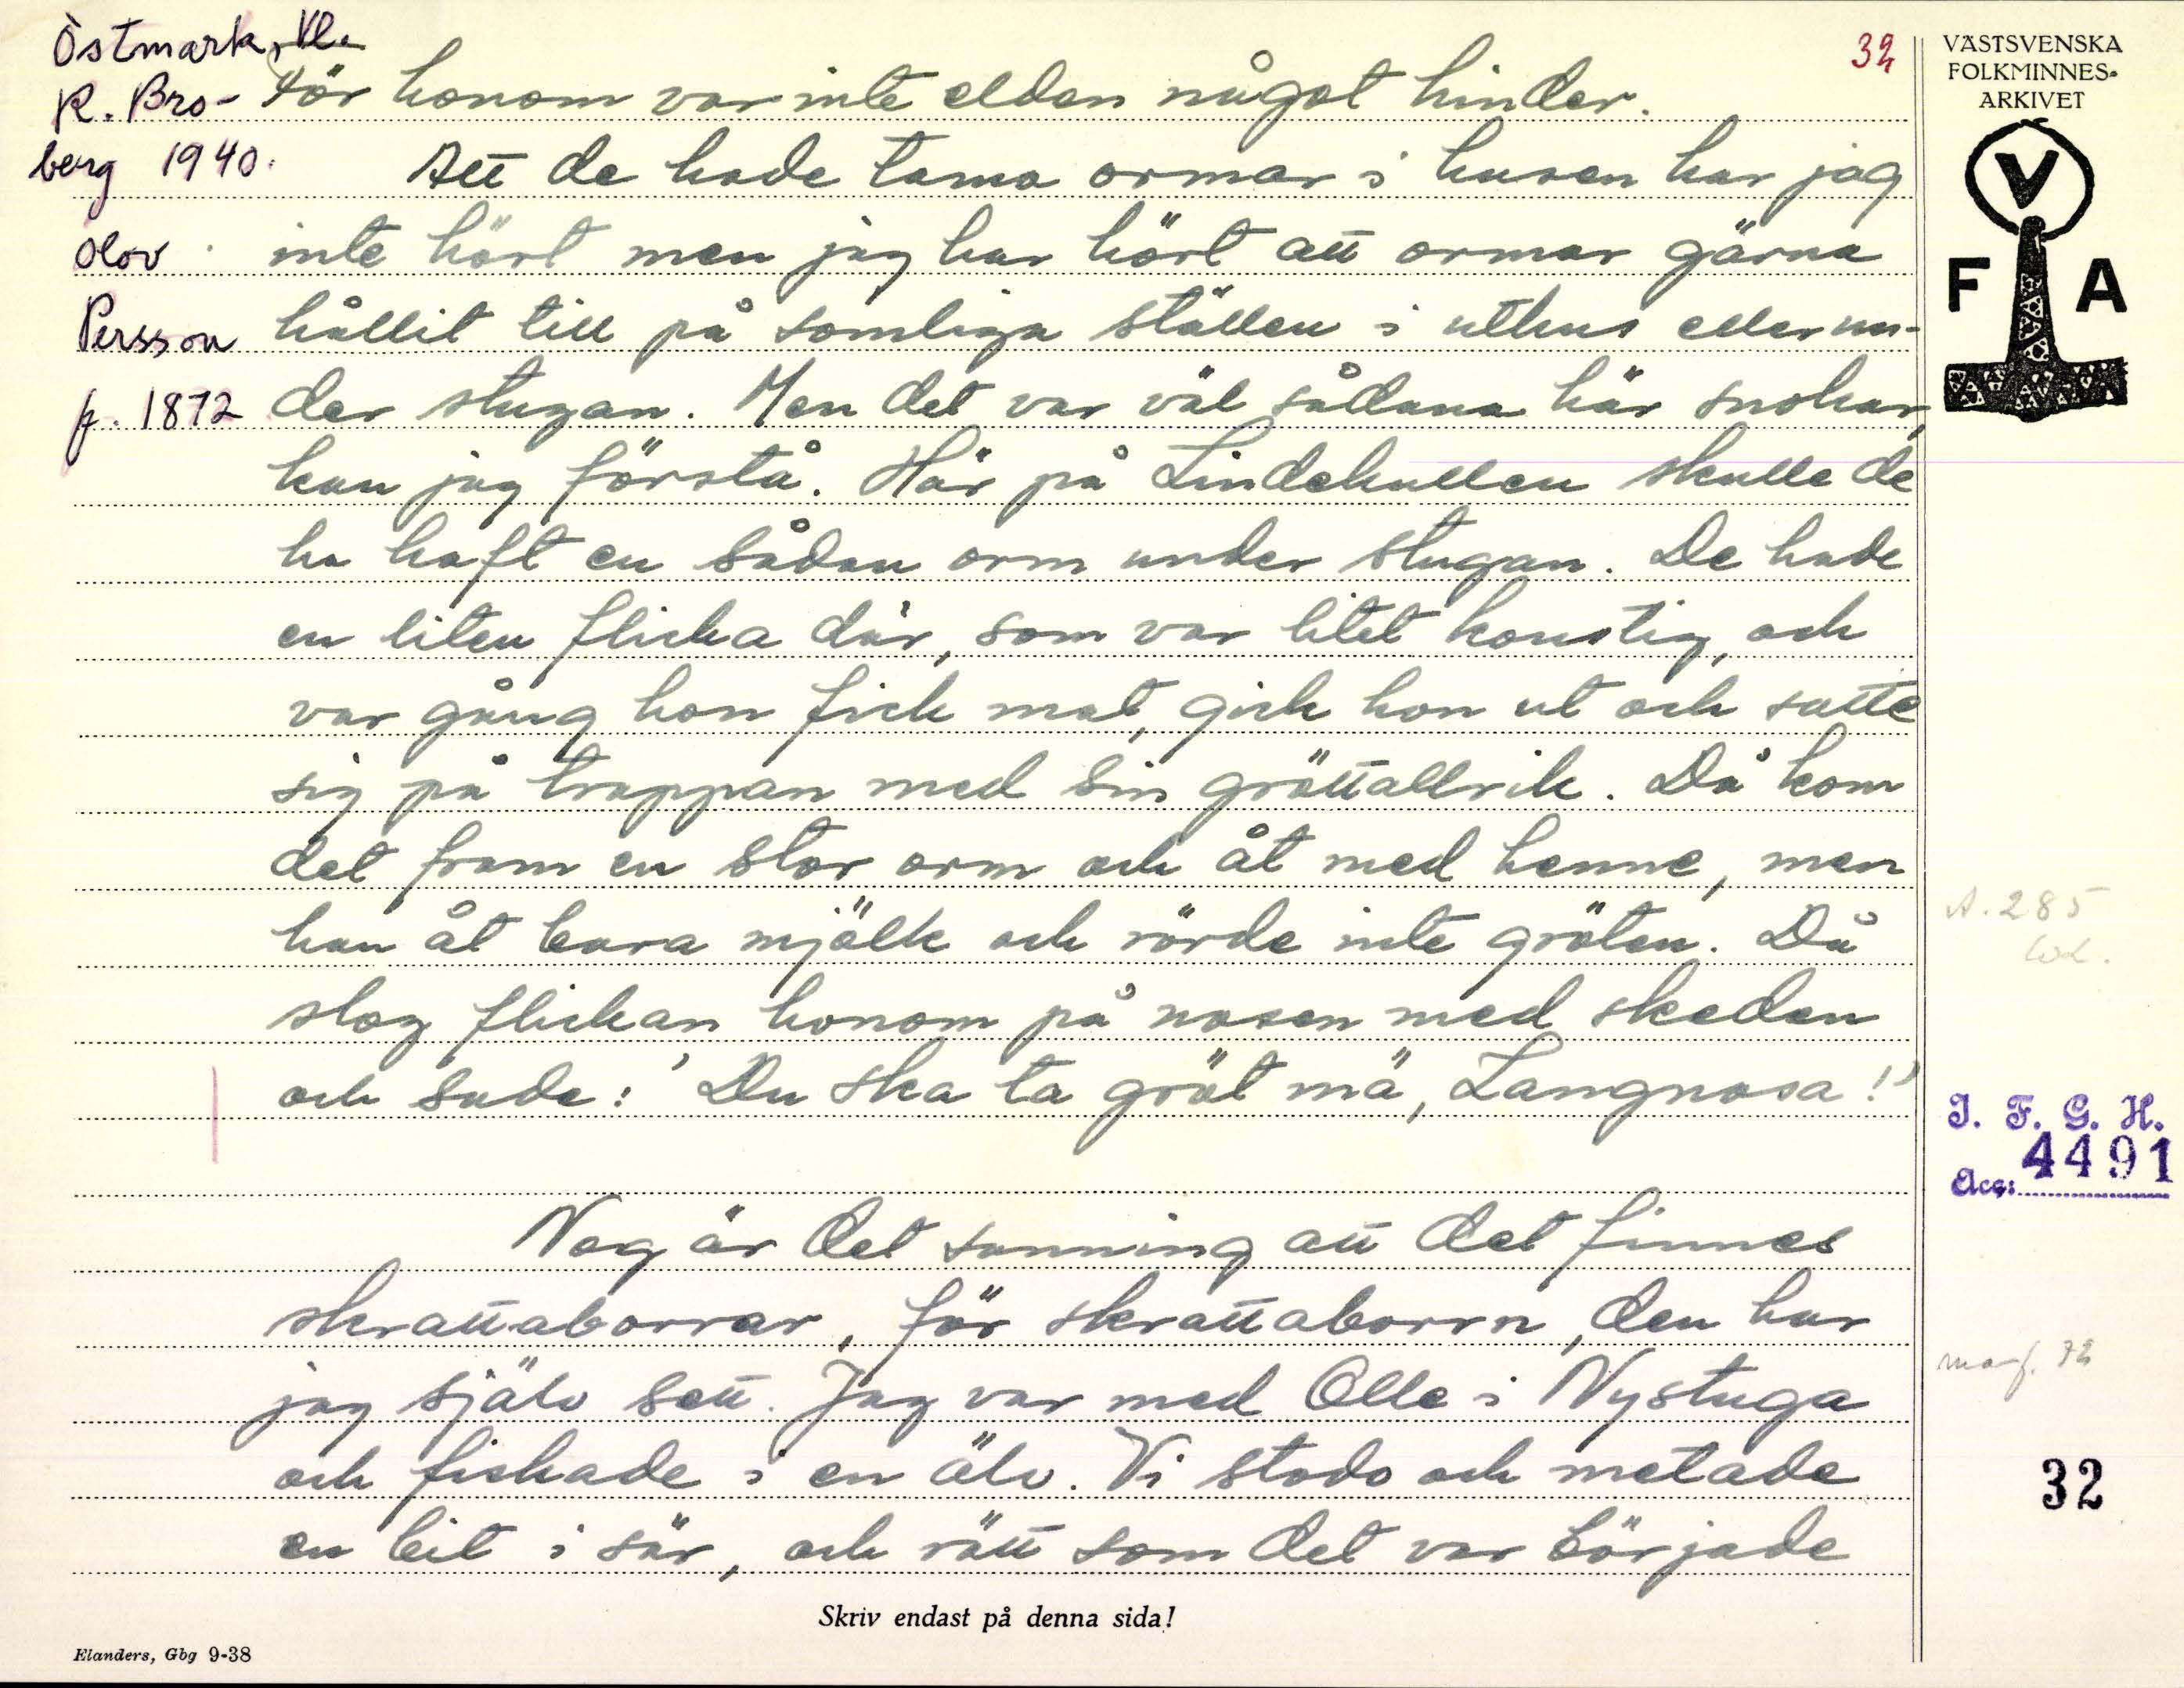 Östmark, Vl.
R. Bro-
berg 1940.
Olov
Persson
f. 1872
32
VÄSTSVENSKA
FOLKMINNES-
ARKIVET
V
F A
För honom var inte elden något hinder.
Att de hade tama ormar i husen har jag
inte hört men jag har hört att ormar gärna
hållit till på somliga ställen i uthus eller un-
der stugan. Men det var väl sådana här snokar,
kan jag förstå. Här på Lindekullen skulle de
ha haft en sådan orm under stugan. De hade
en liten flicka där, som var litet konstig, och
var gång hon fick mat, gick hon ut och satte
sig på trappan med sin gröttallrik. Då kom
det fram en stor orm och åt med henne, men
han åt bara mjölk och rörde inte gröten. Då
slog flickan honom på nosen med skeden
och sade: 'Du ska ta gröt mä, Langnosa!'
Nog är det sanning att det finnes
skrattaborrar, för skrattaborrn, den har
jag själv sett. Jag var med Olle i Nystuga
och fiskade i en älv. Vi stodo och metade
en bit i sär, och rätt som det var började
A. 285
I. F. G. H.
Acc: 4491
32
Skriv endast på denna sida!
Elanders, Gbg 9-38